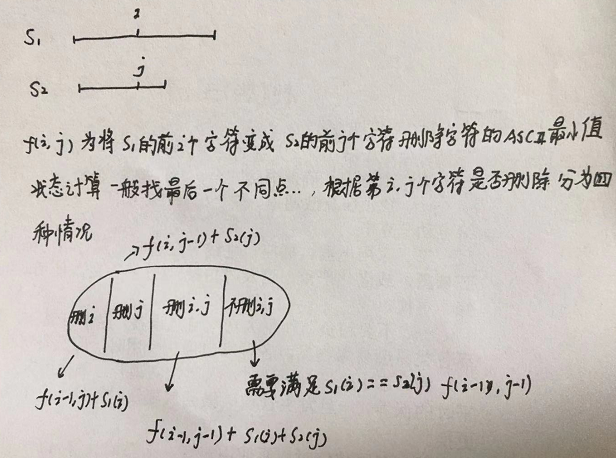 i
S1
j
S2
f(i,j) 为将S1的前i个字符变成 S2的前j个字符删除字符的ASCII最小值
状态计算 一般找最后一个不同点..., 根据第i,j个字符是否删除 分为四
种情况
f(i,j-1)+S2(j)
删i 删j 删i,j 不删i,j
需要满足S1(i)==S2(j) f(i-1,j-1)
f(i-1,j)+S1(i)
f(i-1,j-1)+S1(i)+S2(j)